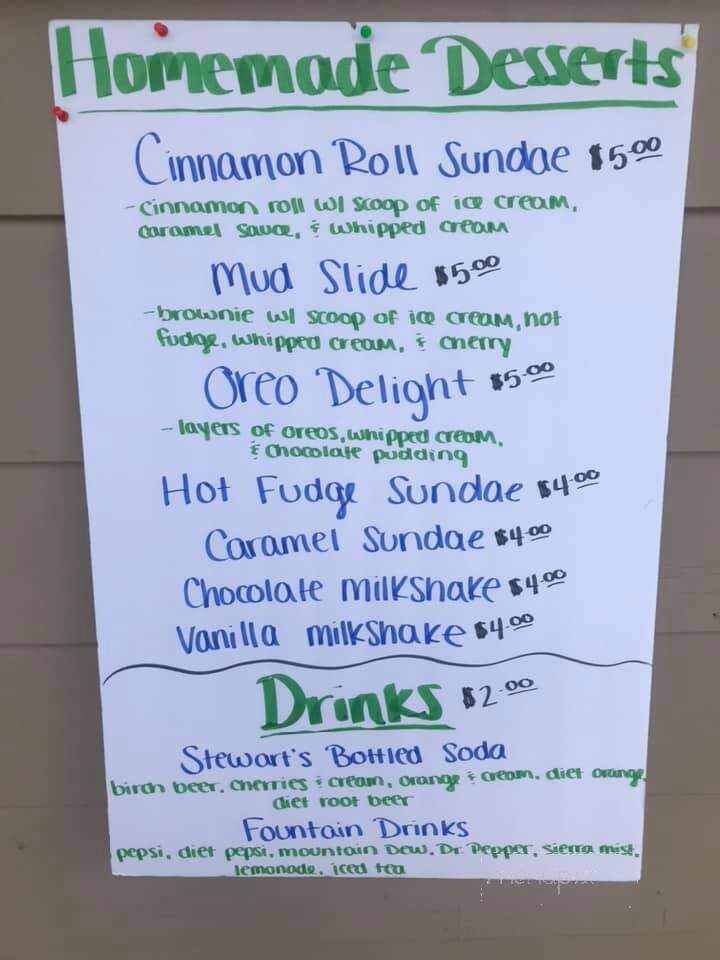 Homemade Desserts
Cinnamon Roll Sundae $5.00
-cinnamon roll w/ scoop of ice cream,
caramel sauce, & whipped cream
Mud Slide $5.00
-brownie w/ scoop of ice cream, hot
fudge, whipped cream, & cherry
Oreo Delight $5.00
-layers of oreos, whipped cream,
& chocolate pudding
Hot Fudge Sundae $4.00
Caramel Sundae $4.00
Chocolate milkshake $4.00
Vanilla milkshake $4.00
Drinks $2.00
Stewart's Bottled Soda
birch beer, cherries & cream, orange & cream, diet orange,
diet root beer
Fountain Drinks
pepsi, diet pepsi, mountain Dew, Dr. Pepper, sierra mist,
lemonade, iced tea